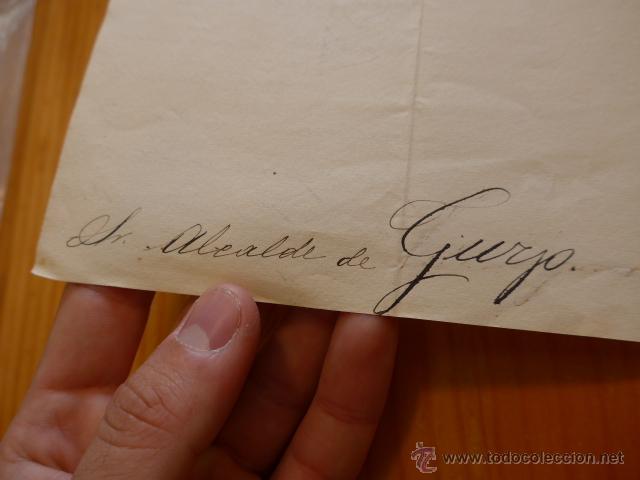 Sr. Alcalde de Gurp.
www.todocoleccion.net